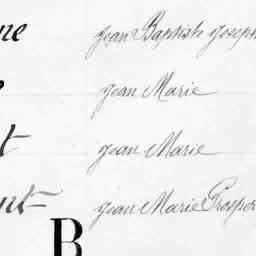 ne Jean Baptiste Joseph
Jean Marie
t Jean Marie
nt Jean Marie Prosper
B